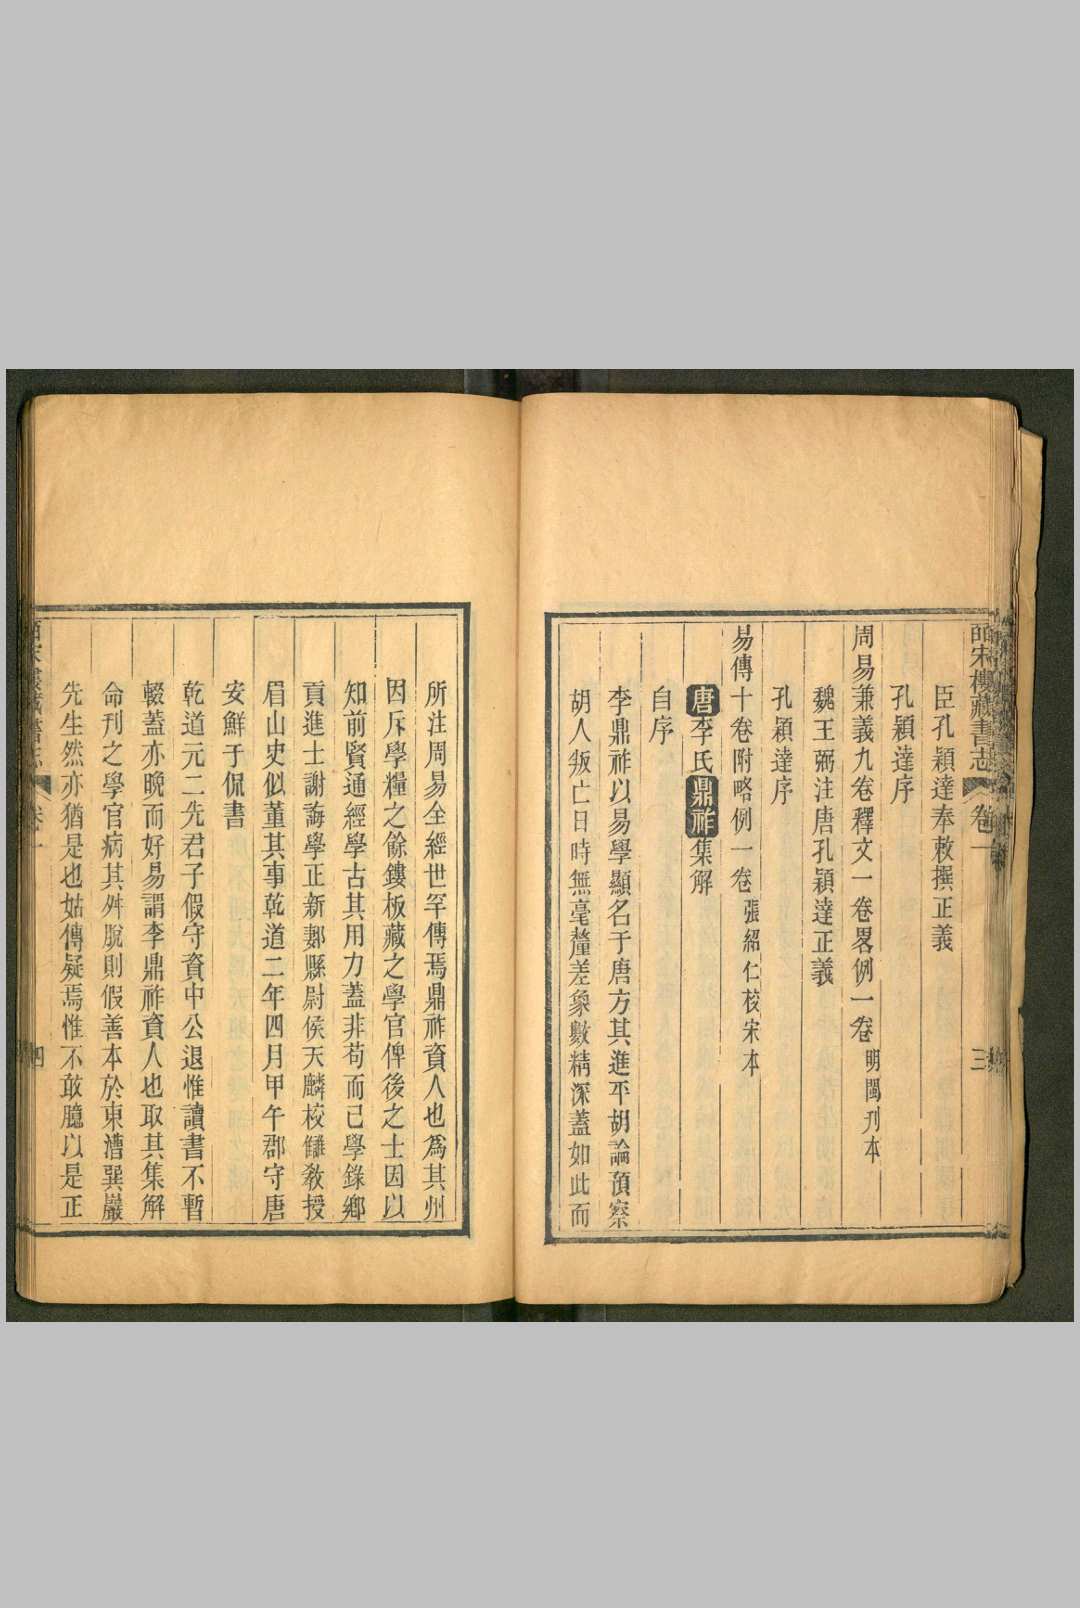 皕宋樓藏書志 卷一 三
臣孔穎達奉敕撰正義
孔穎達序
周易兼義九卷釋文一卷畧例一卷明閩刊本
魏王弼注唐孔穎達正義
孔穎達序
易傳十卷附略例一卷張紹仁校宋本
唐李氏鼎祚集解
自序
李鼎祚以易學顯名于唐方其進平胡論預察
胡人叛亡日時無毫釐差象數精深蓋如此而
所注周易全經世罕傳焉鼎祚資人也爲其州
因斥學糧之餘鏤板藏之學官俾後之士因以
知前賢通經學古其用力蓋非苟而已學錄鄉
貢進士謝誨學正新郪縣尉侯天麟校讎敎授
眉山史似董其事乾道二年四月甲午郡守唐
安鮮于侃書
乾道元二先君子假守資中公退惟讀書不暫
輟蓋亦晚而好易謂李鼎祚資人也取其集解
命刊之學官病其舛脫則假善本於東漕巽巖
先生然亦猶是也姑傳疑焉惟不敢臆以是正
四